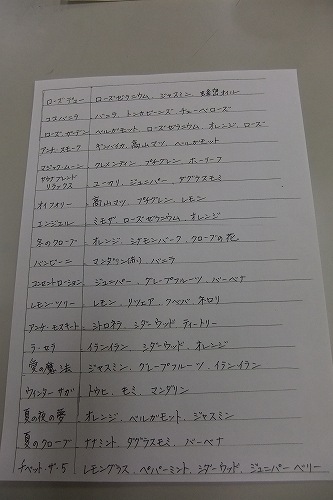 ローズデュー ローズゼラニウム、ジャスミン、蜂蜜オイル
コスバニラ バニラ、トンカビーンズ、チューベローズ
ローズ・ガーデン ベルガモット、ローズゼラニウム、オレンジ、ローズ
アンチ・スモーク ギンバイカ、高山マツ、ベルガモット
マジック・ムーン クレメンティン、プチグレン、ホーリーフ
サウナブレンド リラックス ユーカリ、ジュニパー、ダグラスモミ
オイフォリー 高山マツ、プチグレン、レモン
エンジェル ミモザ、ローズゼラニウム、オレンジ
冬のクローブ オレンジ、シナモンバーク、クローブの花
バンビーニ マンダリン(赤)、バニラ
コンセントローション ジュニパー、グレープフルーツ、バーベナ
レモン・ツリー レモン、リツェア、クベバ、ネロリ
アンチ・モスキート シトロネラ、シダーウッド、ティートリー
ラ・セラ イランイラン、シダーウッド、オレンジ
愛の魔法 ジャスミン、グレープフルーツ、イランイラン
ウィンターサガ トウヒ、モミ、マンダリン
夏の夜の夢 オレンジ、ベルガモット、ジャスミン
夏のクローブ ナナミント、ダグラスモミ、バーベナ
チベット・ザ・5 レモングラス、ペパーミント、シダーウッド、ジュニパーベリー